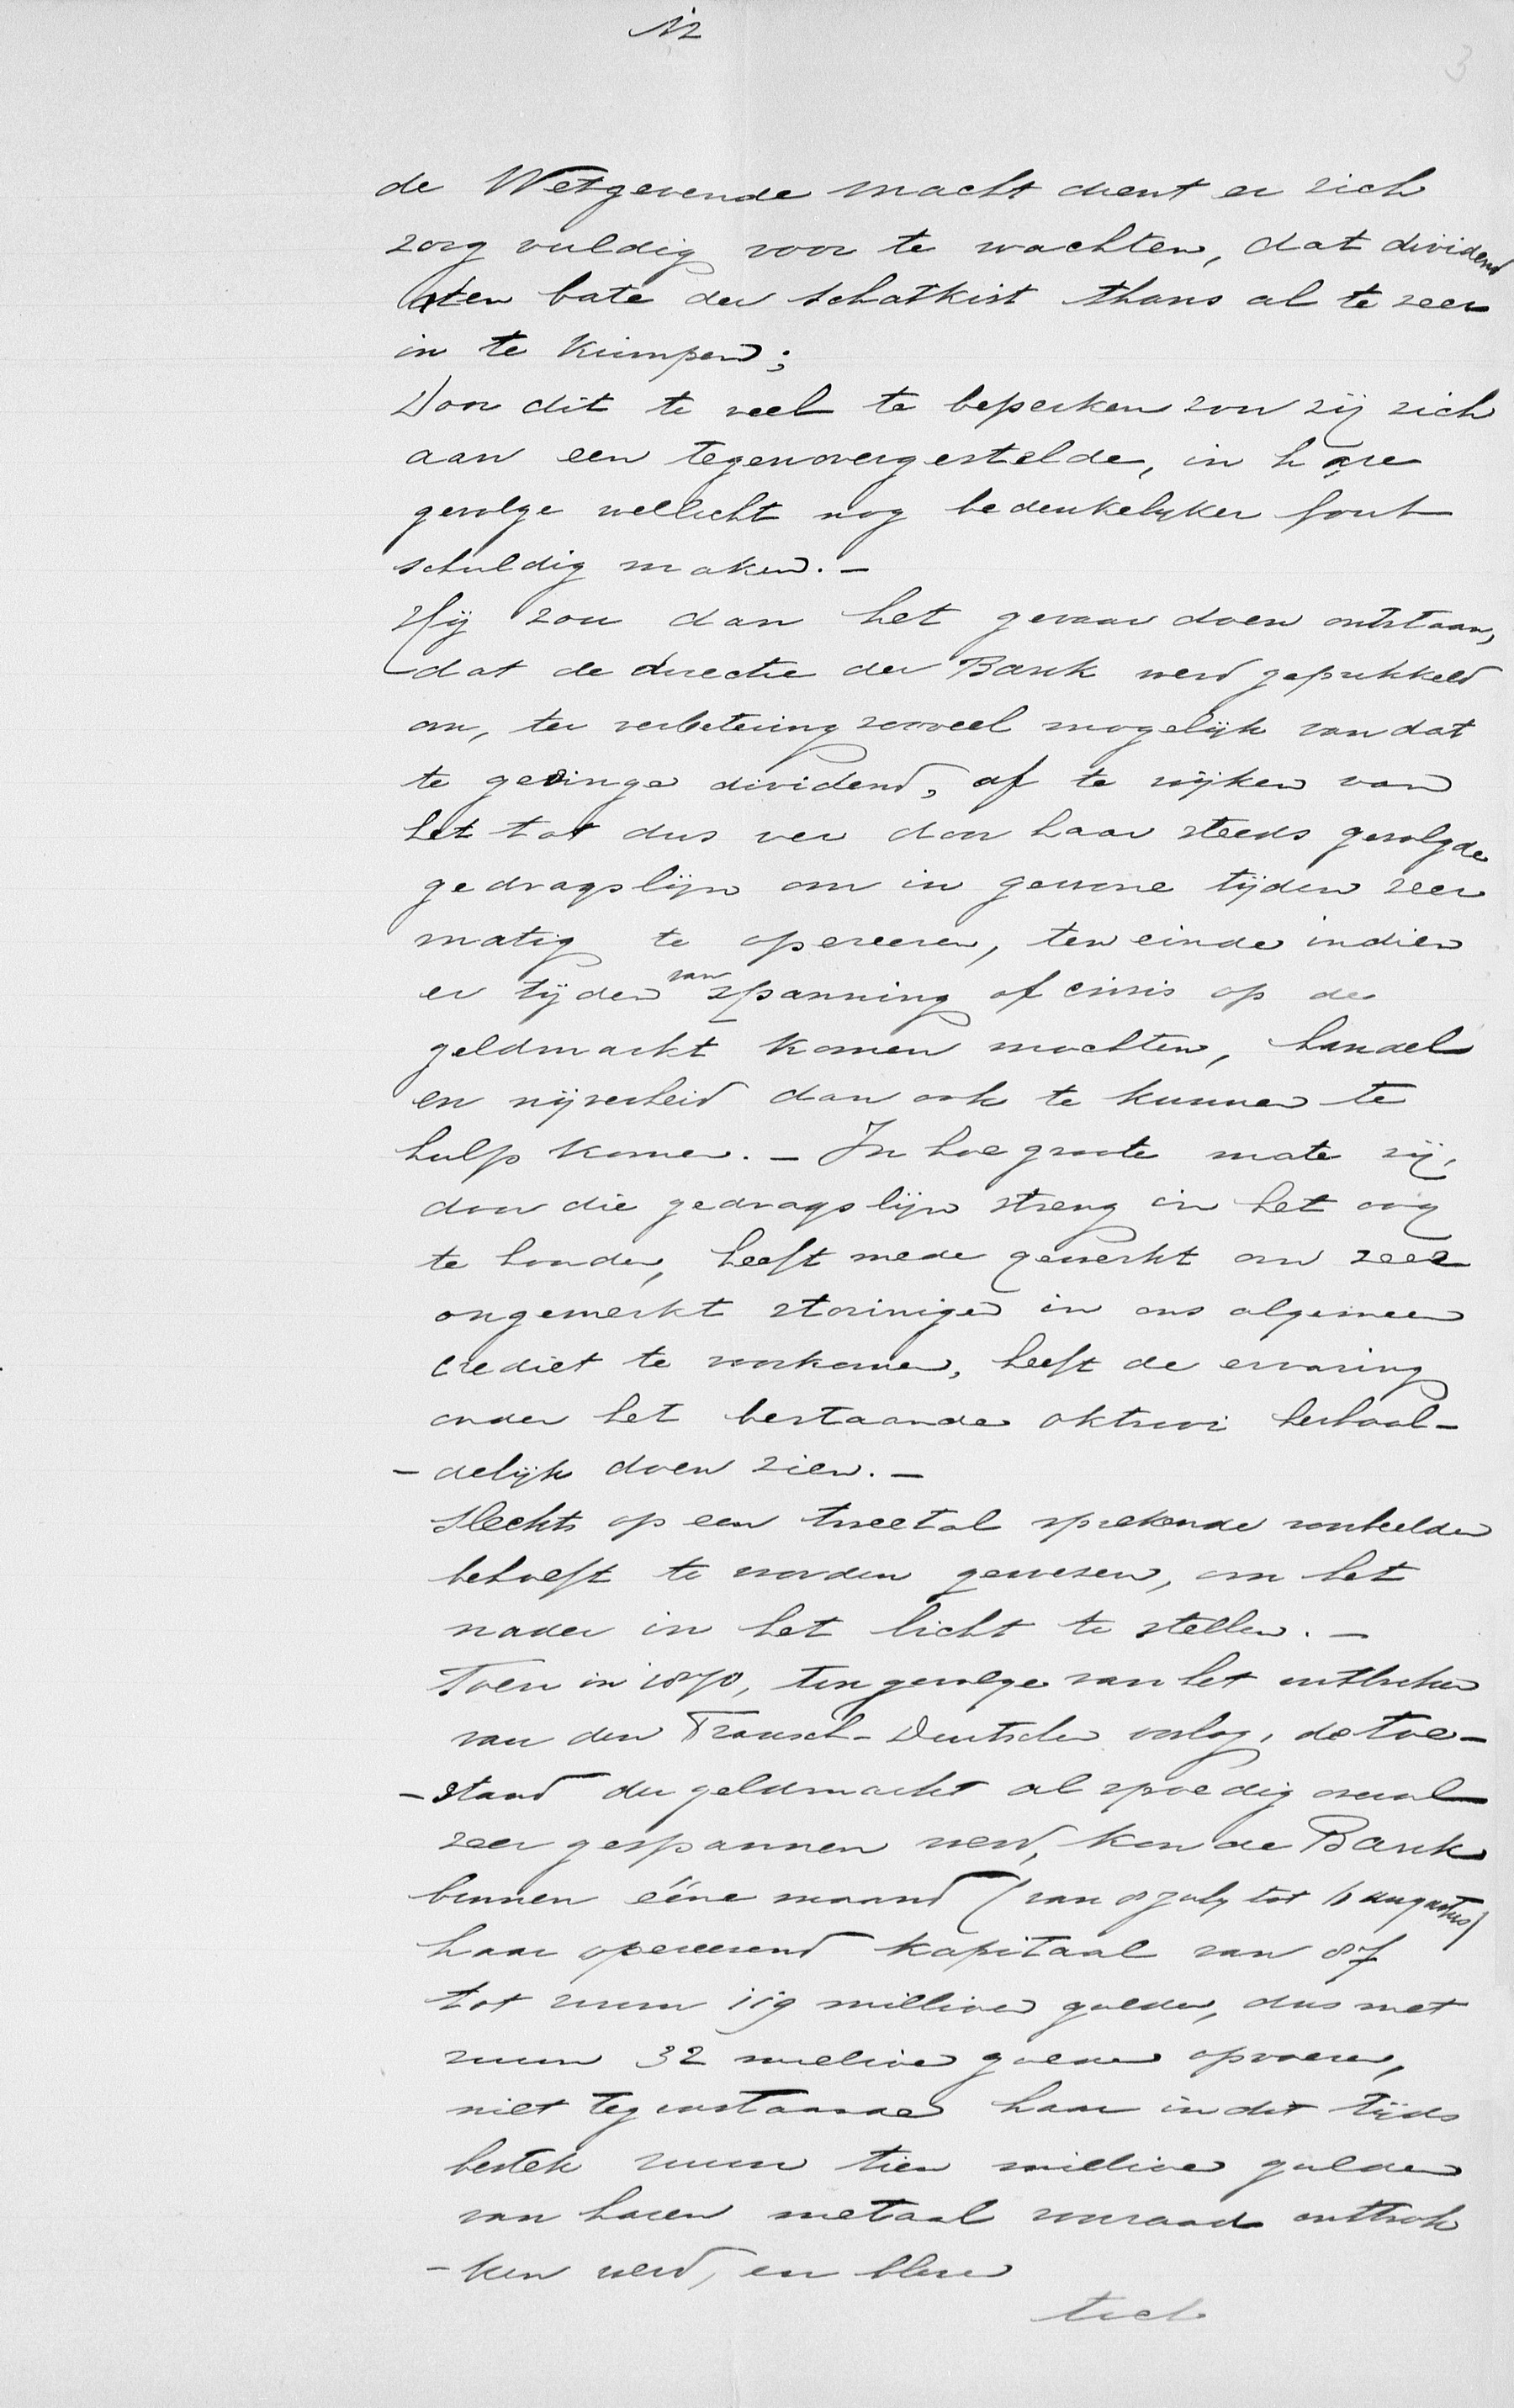 12
3
de Wetgevende macht dient er zich
zorg vuldig voor te wachten, dat dividend
ten bate der schatkist thans al te zeer
in te krimpen;
Door dit te veel te beperken zou zij zich
aan een tegenovergestelde, in hare
gevolge wellicht nog bedenkelyker fout
schuldig maken. -
Zij zou dan het gevaar doen ontstaan,
dat de directie der Bank werd geprikkeld
om, ter verbetering zooveel mogelijk van dat
te geringe dividend, af te wijken van
het tot dus ver door haar steeds gevolgde
gedragslijn om in gewone tijden zeer
matig te opereeren, ten einde indien
er tijden van spanning of crisis op de
geldmarkt komen mochten, handel
en nijverheid dan ook te kunnen te
hulp komen. - In hoe groote mate zij,
door die gedragslijn streng in het oog
te houden, heeft mede gewerkt om zeer
ongemerkt storingen in ons algemeen
crediet te voorkomen, heeft de ervaring
onder het bestaande oktrooi herhaal-
- delijk doen zien. -
Slechts op een tweetal sprekende voorbeelden
behoeft te worden gewezen, om het
nader in het licht te stellen. -
Toen in 1870, ten gevolge van het uitbreken
van den Fransch-Duitschen oorlog, de toe-
- stand der geldmarkt al spoedig overal
zeer gespannen werd, kon de Bank
binnen ééne maand (van 8 july tot augustus)
haar opereerend kapitaal van 87
tot ruim 119 millioen gulden, dus met
ruim 32 millioen gulden opvoeren,
niet tegenstaande haar in dit tijds
bestek ruim tien millioen gulden
van haren metaal voorraad onttrok
- ken werd, en bleef
toch